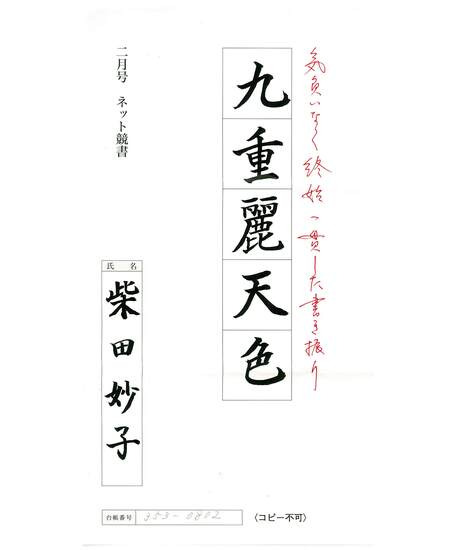 気負いなく終始一貫した書き振り
九重麗天色
二月号 ネット競書
氏名
柴田妙子
台帳番号 353-0802
〈コピー不可〉